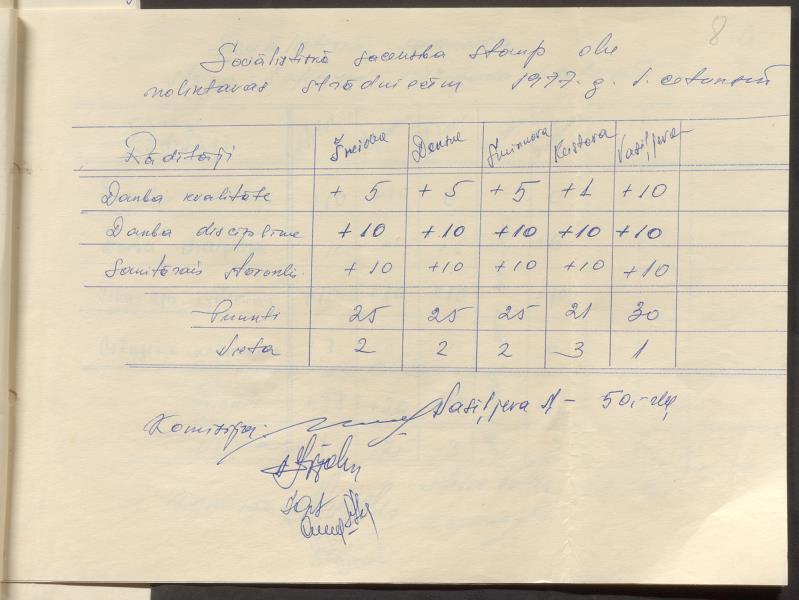 8
Sociālistiskā sacensība starp
noliktavas strādniecēm 1977. g. 1. ceturksnī
Rādītāji Šneidka Smirnova Keistova Vasiļjeva
Darba kvalitāte +5 +5 +5 +1 +10
Darba disciplīna +10 +10 +10 +10 +10
Sanitārais stāvoklis +10 +10 +10 +10 +10
Punkti 25 25 25 21 30
Vieta 2 2 2 3 1
Vasiļjeva A – 50,-
Komisija: